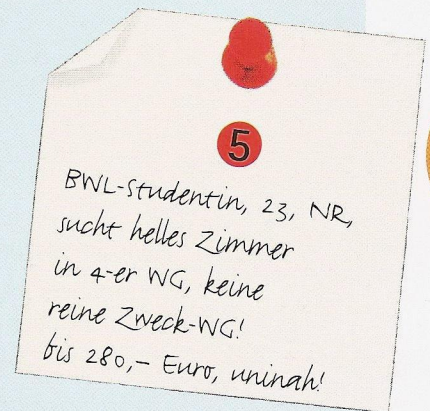 5
BWL-Studentin, 23, NR,
sucht helles Zimmer
in 4-er WG, keine
reine Zweck-WG!
bis 280,– Euro, uninah!